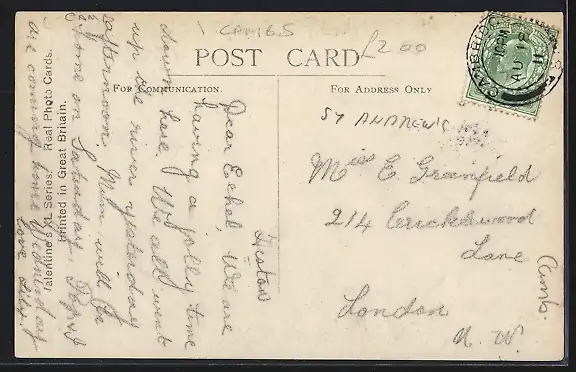 CAMBS
£2 00
POST CARD
FOR COMMUNICATION.
FOR ADDRESS ONLY
Histon
Dear Ethel, We are
having a jolly time
down here. We all went
up the river yesterday
afternoon. Mum will be
home on Saturday. Pop & I
are coming home Wednesday
Love Lily.
Valentine's XL Series. Real Photo Cards.
Printed in Great Britain.
ST ANDREW'S
Miss E Greenfield
214 Cricklewood
Lane
London
N. W
Camb.
CAMBRIDGE
AU 19
11